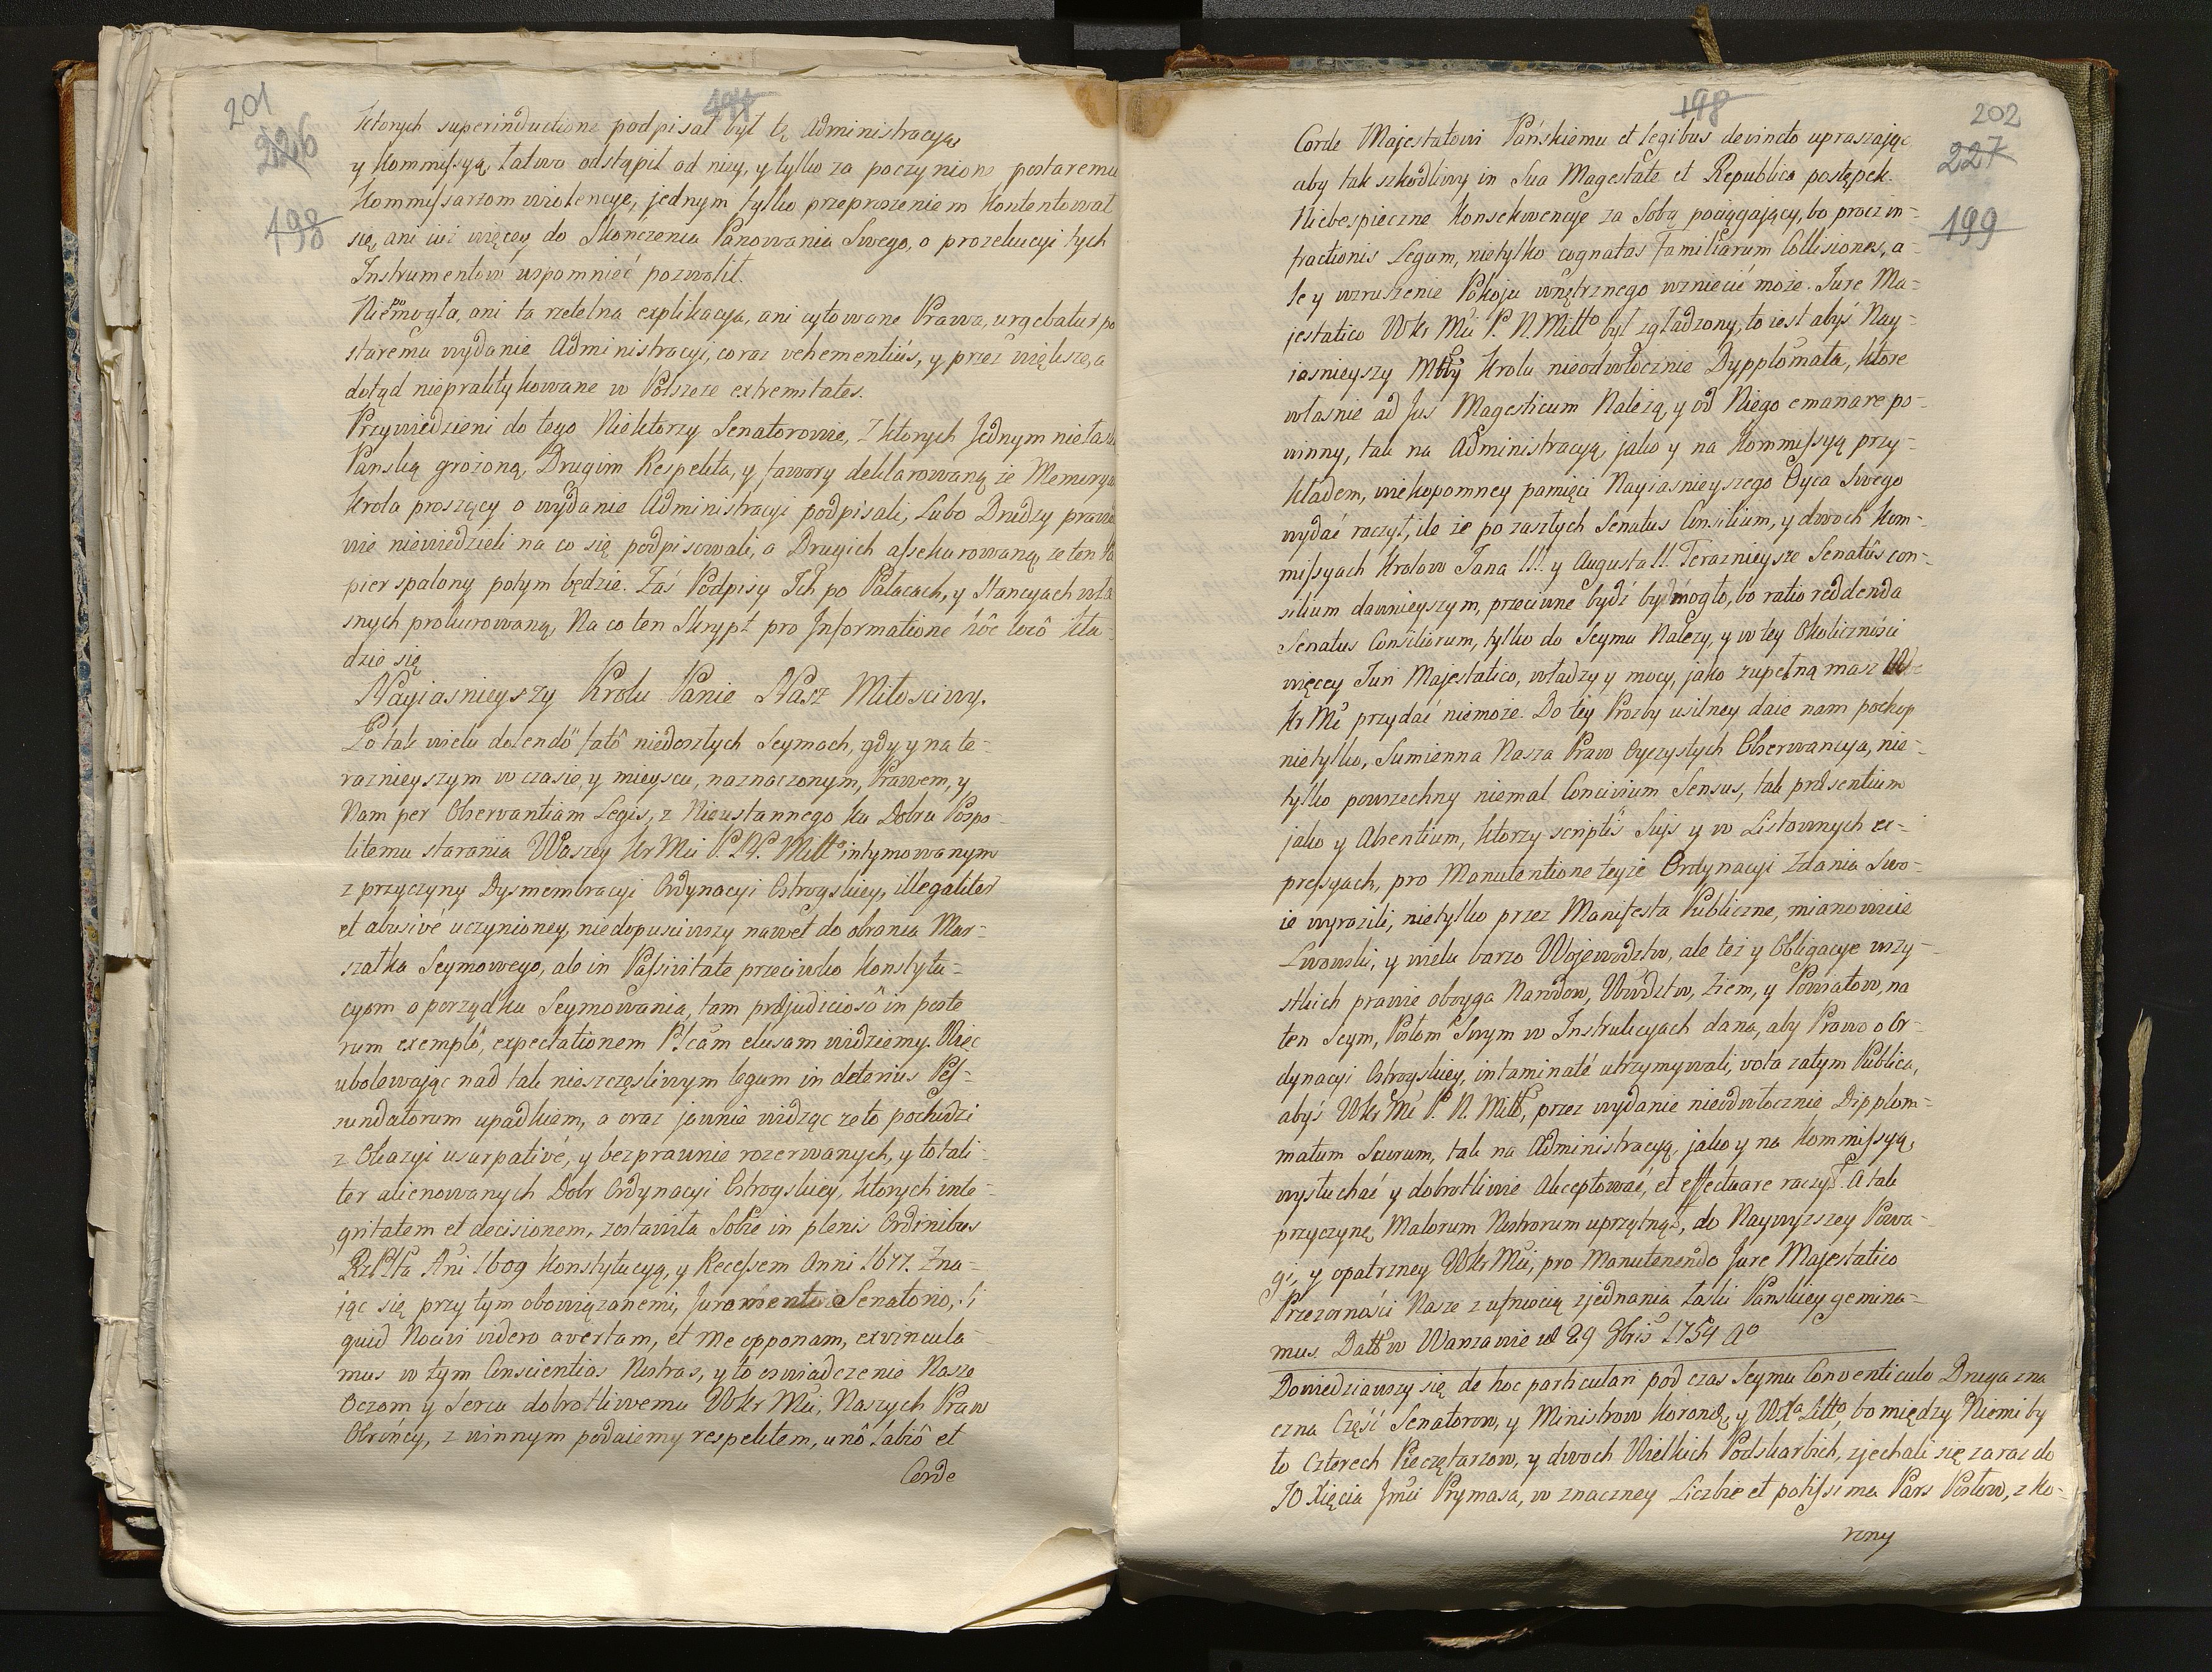 201
226
498
497
Ktorych superinductione podpisał był tę Administracyą,
y Kommissyą, łatwo odstąpił od niey, y tylko za poczynione postaremu
Kommissarzom wiolencye, jednym tylko przeproszeniem kontentował
się, ani iuż więcey do Skonczenia Panowania Swego, o prozekucyi tych
Instrumentow wspomnieć pozwolił.
Niepomogła, ani ta rzetelna explikacya, ani cytowane Prawa, urgebatur po
staremu wydanie Administracyi, coraz vehementiùs, y przez większe, a
dotąd niepraktykowane w Polszcze extremitates.
Przywiedzieni do tego Niektorzy Senatorowie, z ktorych Jednym niełaską
Panską grożoną, Drugim Respekta, y fawory deklarowaną, że Memoryał
Krola proszący o wydanie Administracyi podpisali, Lubo Drudzy prawie
nie niewiedzieli na co się podpisowali, a Drugich assekurowaną, że ten Pa
pier spalony potym będzie. Zaś Podpisy Ich po Pałacach, y Stancyach wła
snych prokurowaną, Na co ten Skrypt pro Informatione hôc locô kła-
dzie się
Nayiasnieyszy Krolu Panie Nasz Miłosciwy.
Po tak wielu dolendô fatô niedoszłych Seymach, gdy y na te-
raznieyszym w czasie, y mieyscu, naznaczonym, Prawem, y
Nam per Observantiam Legis, z Nieustannego ku Dobru Pospo-
litemu starania Waszey Kr Mci P. N. Miłło intymowanym
z przyczyny Dysmembracyi Ordynacyi Ostrogskiey, illegaliter
et abusivé uczynioney, niedopusciwszy nawet do obrania Mar-
szałka Seymowego, ale in Passivitate przeciwko Konstytu-
cyom o porządku Seymowania, tam præjudiciosô in poste
rum exemplô, expectationem Pblcam elusam widziemy. Więc
ubolewaiąc nad tak nieszczęsliwym legum in deterius Pes-
sundatorum upadkiem, a oraz jawnie widząc że to pochodzi
z Okazyi usurpativé, y bezprawnie rozerwanych, y totali-
ter alienowanych Dobr Ordynacyi Ostrogskiey, ktorych inte-
gritatem et decisionem, zostawiła Sobie in plenis Ordinibus
RzPlta Ani 1609 Konstytucyą, y Recessem Anni 1677. Zna-
iąc się przy tym obowiązanemi, Juramento Senatorio, Si
quid Nocivi videro avertam, et me opponam, exvincula-
mus w tym Conscientias Nostras, y to oswiadczenie Nasze
Oczom y Sercu dobrotliwemu WKr Mci, Naszych Praw
Obrońcy, z winnym podaiemy respektem, unô labiô et
Corde
198
202
227
199
Corde Majestatowi Pańskiemu et legibus devincto upraszając
aby tak szkodliwy in Sua Magestate et Republica postępek.
Niebespieczne Konsekwencye za Sobą pociągający, bo procz in-
fractionis Legum, nietylko cognatas Familiarum Collisiones, a-
le y wzruszenie Pokoju wnętrznego wzniecić może. Jure Ma-
jestatico WKr Mci P. N. Miłło był zgładzony, to iest abyś Nay-
iasnieyszy Mły Krolu nieodwłocznie Dypplomata, ktore
własnie ad Jus Magesticum Należą, y od Niego emanare po-
winny, tak na Administracyą, jako y na Kommissyą przy-
kładem, wiekopomney pamięci Nayiasnieyszego Oyca Swego
wydać raczył, ile że po zaszłych Senatus Consilium, y dwoch Kom-
missyach Krolow Jana III. y Augusta II. Teraznieysze Senatûs con-
silium dawnieyszym, przeciwne bydź by mogło, bo ratio reddenda
Senatus Consiliorum, tylko do Seymu Należy, y w tey Okoliczności
więcey Juri Majestatico, władzy y mocy, jako zupełną masz W
Kr Mć przydać niemoże. Do tey Prozby usilney daie nam pochop
nietylko, Sumienna Nasza Praw Oyczystych Obserwancya, nie-
tylko powszechny niemal Concivium Sensus, tak præsentium
jako y Absentium, ktorzy scriptis Suis y w Listownych ex-
pressyach, pro Manutentione teyże Ordynacyi Zdania Swo-
ie wyrazili, nietylko przez Manifesta Publiczne, mianowicie
Lwowski, y wielu barzo Wojewodztw, ale też y Obligacye wszy-
stkich prawie oboyga Narodow, Wwdztw, Ziem, y Powiatow, na
ten Seym, Posłom Swym w Instrukcyach dana, aby Prawo o Or-
dynacyi Ostrogskiey, intaminaté utrzymywali, vota zatym Publica,
abyś WKr Mć P. N. Miłł, przez wydanie nieodwłocznie Dipplom-
matum Suorum, tak na Administracyą, jako y na Kommissyą,
wysłuchać y dobrotliwie Akceptować, et effectuare raczył. A tak
przyczynę Malorum Nostrorum uprzątnął, do Naywyzszey Powa-
gi, y opatrzney WKr Mci, pro Manutenendo Jure Majestatico
Przezorności Nasze z ufnością zjednania łaski Panskiey gemina-
mus. Datt w Warszawie d 29 8bris 1754 Ao
Dowiedziawszy się de hoc particulari pod czas Seymu Conventiculo Druga zna
czna Część Senatorow, y Ministrow Koronĕ, y WXa Litto, bo między Niemi by
ło czterech Pieczętarzow, y dwoch Wielkich Podskarbich, zjechali się zaraz do
JO Xięcia Jmci Prymasa, w znaczney Liczbie et potissima Pars Posłow, z Ko-
rony